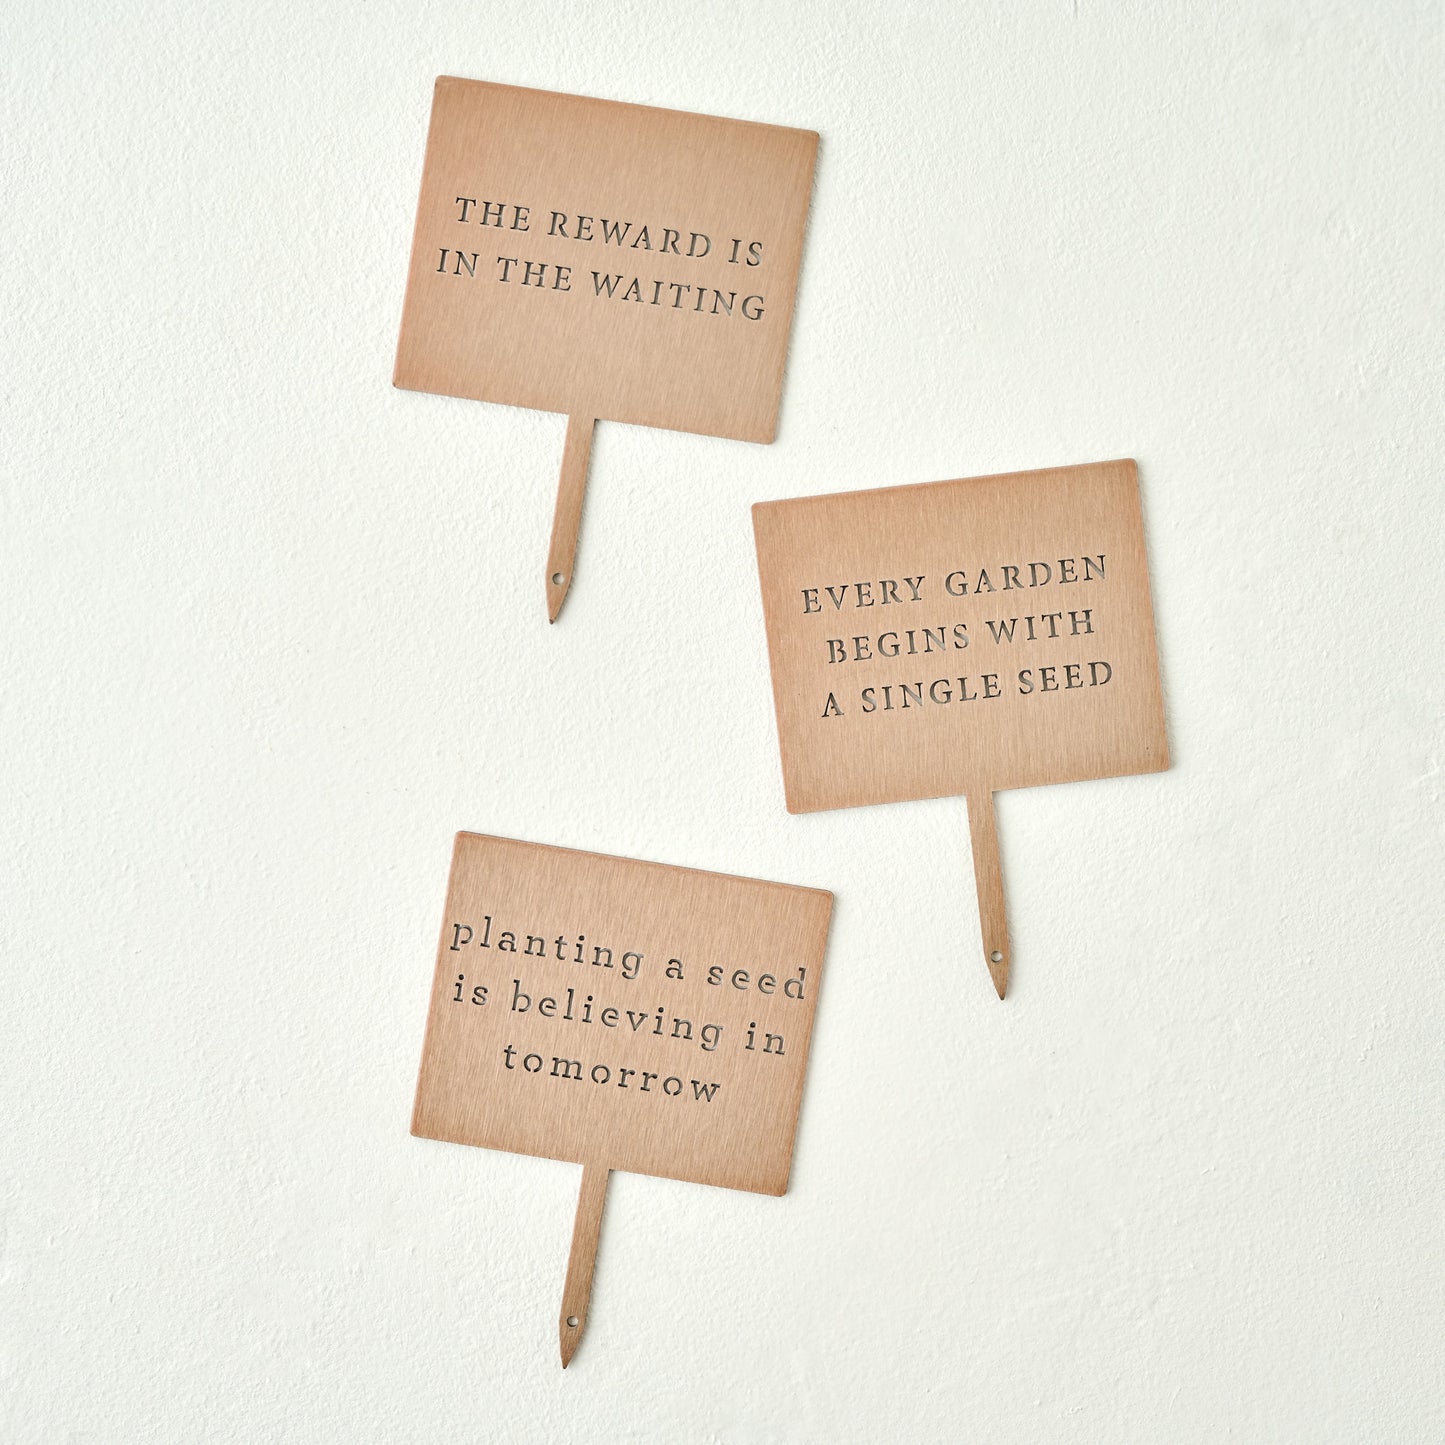 THE REWARD IS
IN THE WAITING
EVERY GARDEN
BEGINS WITH
A SINGLE SEED
planting a seed
is believing in
tomorrow